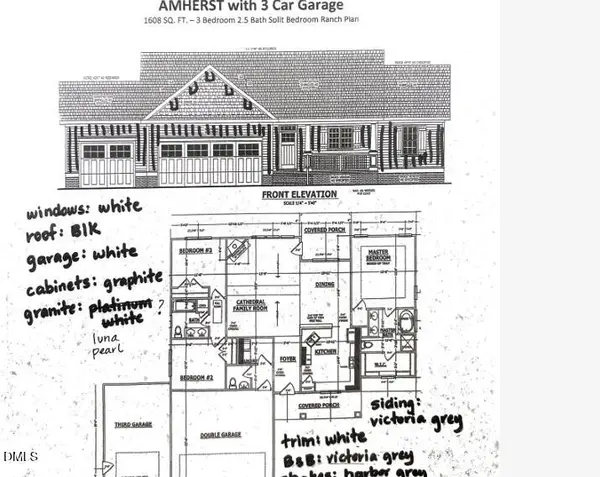 AMHERST with 3 Car Garage
1608 SQ. FT. – 3 Bedroom 2.5 Bath Split Bedroom Ranch Plan
FRONT ELEVATION
SCALE 1/4" - 1'0"
windows: white
roof: Blk
garage: white
cabinets: graphite
granite: platinum ?
white
luna
pearl
COVERED PORCH
BEDROOM #3
MASTER
BEDROOM
DINING
CATHEDRAL
FAMILY ROOM
MASTER
BATH
FOYER
KITCHEN
W.I.C.
BEDROOM #2
COVERED PORCH
THIRD GARAGE
DOUBLE GARAGE
siding:
victoria grey
trim: white
B&B: victoria grey
shakes: harbor grey
DMLS